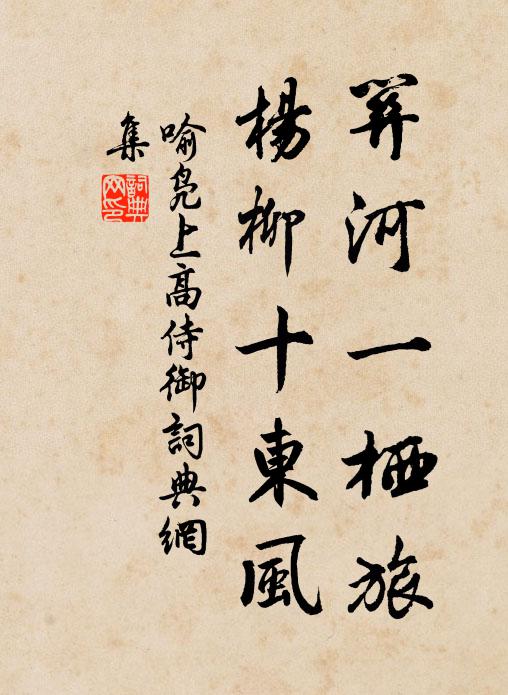 笄河一栖旅
楊柳十東風
喻凫上高侍御詞典網
集
詞典
網印